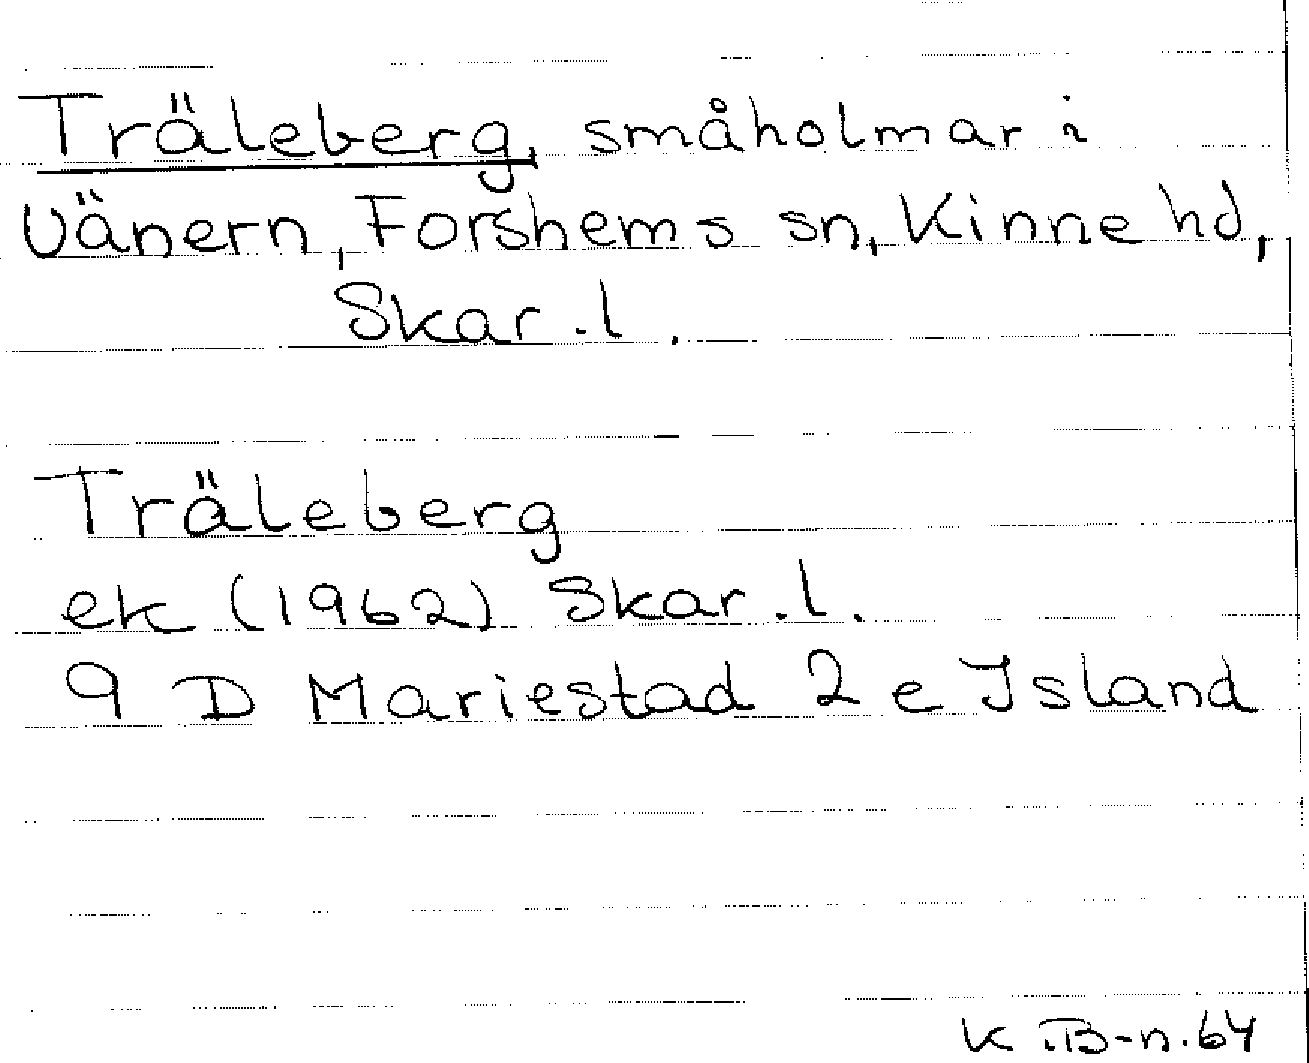 Träleberg, småholmar i
Vänern, Forshems sn, Kinne hd,
Skar.l.
Träleberg
ek (1962) Skar.l.
9 D Mariestad 2 e Island
K.B-n.64